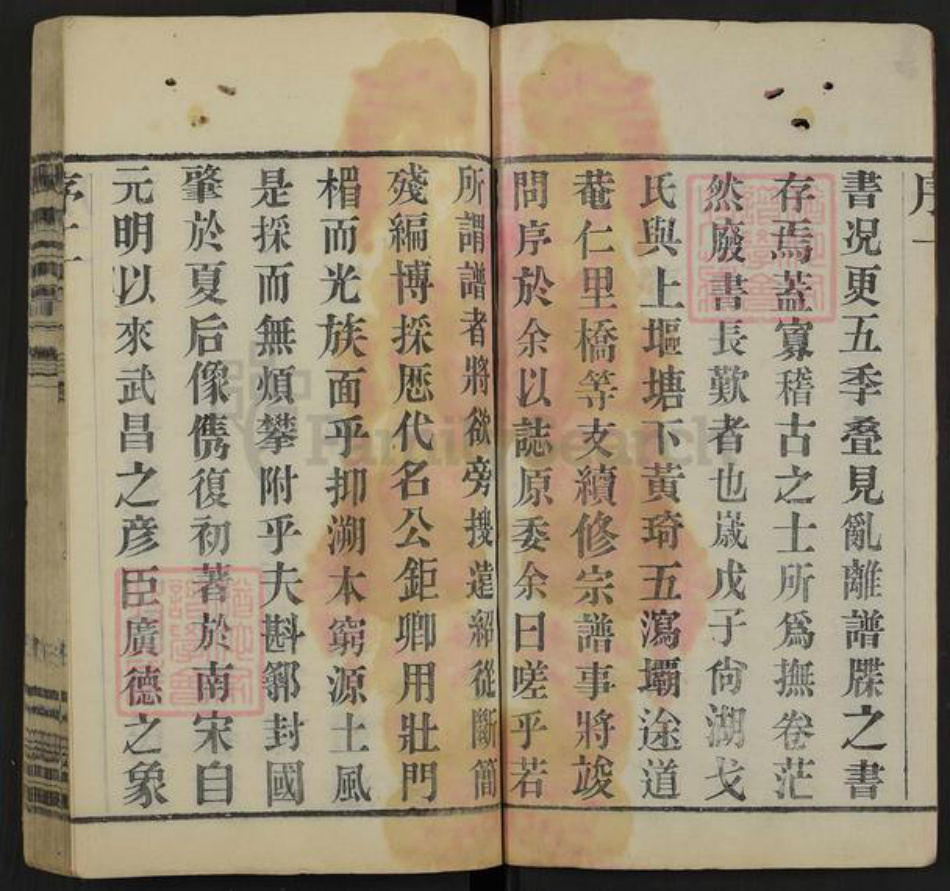 序一
書况更五季叠見亂離譜牒之書
存焉蓋寡稽古之士所爲撫卷茫
然廢書長歎者也嵗戊子尙湖戈
氏與上堰塘下黃琦五瀉壩途道
菴仁里橋等支續修宗譜事將竣
問序於余以誌原委余曰嗟乎若
所謂譜者將欲旁搜遠紹從斷簡
殘編博採歴代名公鉅卿用壯門
楣而光族面乎抑溯本窮源土風
是採而無煩攀附乎夫斟鄩封國
肇於夏后像儁復初著於南宋自
元明以來武昌之彦臣廣德之象
FamilySearch